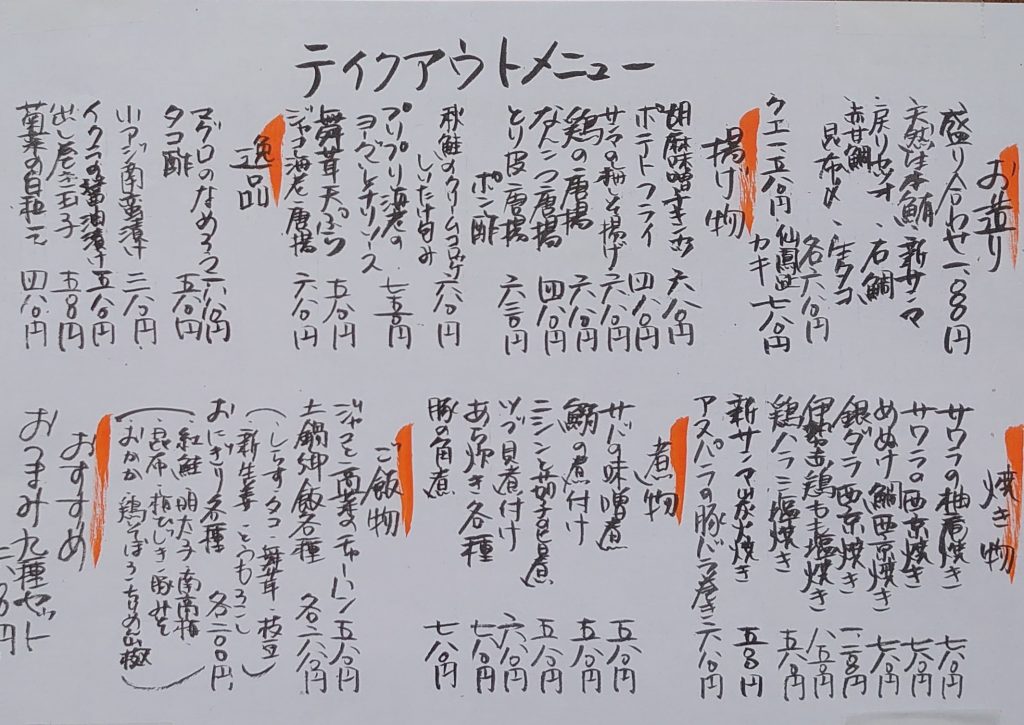 ティクアウトメニュー
お造り
盛り合わせ一、〇八〇円
天然生本鮪・新サンマ
戻りカツオ・石鯛
赤甘鯛・生タコ
昆布〆 各六八〇円
クエ一二五八〇円 仙鳳趾
カキ 七八〇円
揚げ物
胡麻味噌チキンカツ 六八〇円
ポテトフライ 四八〇円
サンマの梅しそ揚げ 六八〇円
鶏の唐揚 六八〇円
なんこつ唐揚 四八〇円
とり皮唐揚
ポン酢 六三〇円
秋鮭のクリームコロッケ 六八〇円
しいたけ包み
プリプリ海老の
ヨーグルトチリソース 七五〇円
舞茸天ぷら 五八〇円
ジャコ海老唐揚 六八〇円
逸品
マグロのなめろう 六八〇円
タコ酢 五八〇円
小アジ南蛮漬 三八〇円
イクラの醤油漬け 五八〇円
出し巻き玉子 五五〇円
菊菜の白和え 四八〇円
焼き物
サワラの柚香焼き 七八〇円
サワラの西京焼き 七八〇円
めぬけ鯛西京焼き 七八〇円
銀ダラ西京焼き 一、二〇〇円
伊勢赤鶏もも塩焼き 八五〇円
鶏ハラミ塩焼き 五八〇円
新サンマ炭火焼き 五五〇円
アスパラの豚バラ巻き 六八〇円
煮物
サバの味噌煮 五八〇円
鰤の煮付け 五八〇円
ニシンと茄子の旨煮 五八〇円
ツブ貝煮付け 六八〇円
あら炊き各種 七八〇円
豚の角煮 七八〇円
ご飯物
ジャコと高菜のチャーハン 五八〇円
土鍋御飯各種 各一、六八〇円
(しらす・タコ・舞茸・枝豆
新生姜・とうもろこし)
おにぎり各種 各二〇〇円
(紅鮭・明太子・南高梅
昆布・梅ひじき・豚みそ
おかか・鶏そぼろ・ちりめん山椒)
おすすめ
おつまみ九種セット